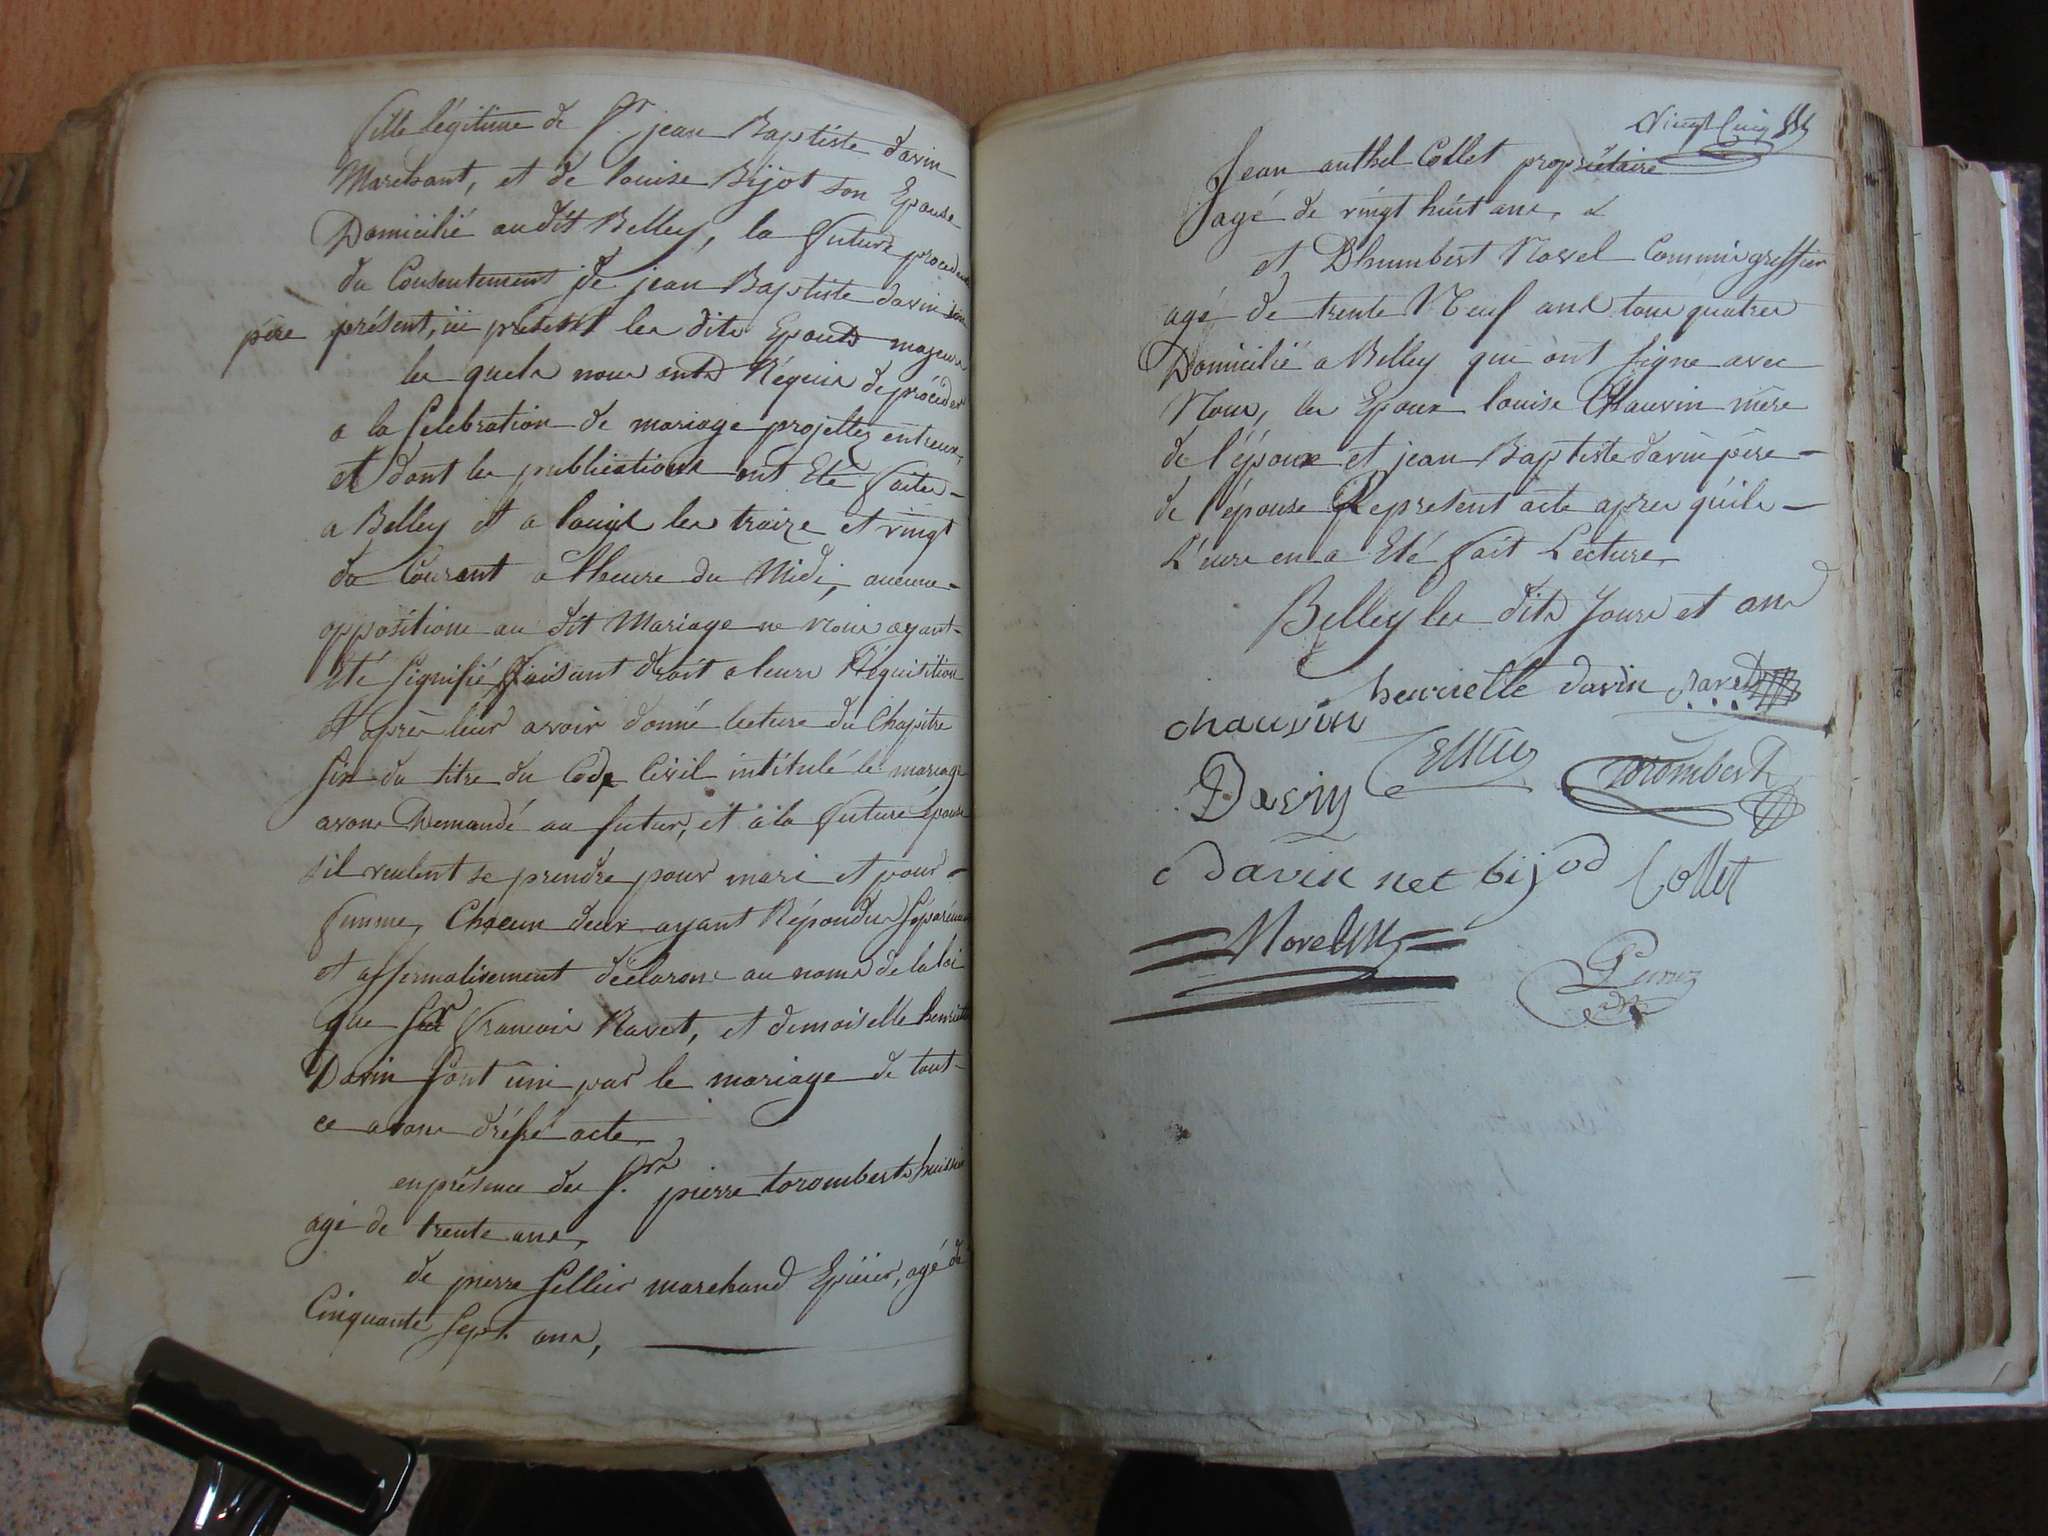 fille légitime de Sr. jean Baptiste davin
Marchant, et de louise Bijot son Epouse
Domicilié audit Belley, la future procedant
du Consentement de jean Baptiste davin son
père présent, les dits Epoux majeurs
les quels nous ont Réquis de procéder
a la Celebration de mariage projettez entreux,
et dont les publications ont Eté faites
a Belley et a les treize et vingt
du Courant a lheure du Midi, aucune
opposition au dit Mariage ne nous ayant
été signifié faisant droit a leurs Réquisition
et après leur avoir donné lecture du Chapitre
six du titre du Code Civil intitulé le mariage
avons Demandé au futur, et a la future épouse
sil veulent se prendre pour mari et pour
femme, Chacun deux ayant Répondu séparément
et affirmativement déclarons au nom de la loi
que francois Ravet, et demoiselle henriette
Davin sont uni par le mariage de tout
ce avons dréssé acte,
en présence des Srs. pierre torombert huissier
agé de trente ans,
de pierre Sellier marchand Epicier, agé de
Cinquante sept ans,
vingt cinq
Jean anthel Collet propriétaire
agé de vingt huit ans,
et Dhumbert Morel Commis greffier
agé de trente Neuf ans tous quatres
Domicilié a Belley qui ont signe avec
Nous, les Epoux louise Chauvin mère
de l'époux et jean Baptiste davin père
de l'épouse le present acte apres quils
L'eure en a Eté fait Lecture,
Belley les dits Jours et ans
henriette davin Ravet
chauvin
Torombert
Davin
Davin net bijod Collet
Morel